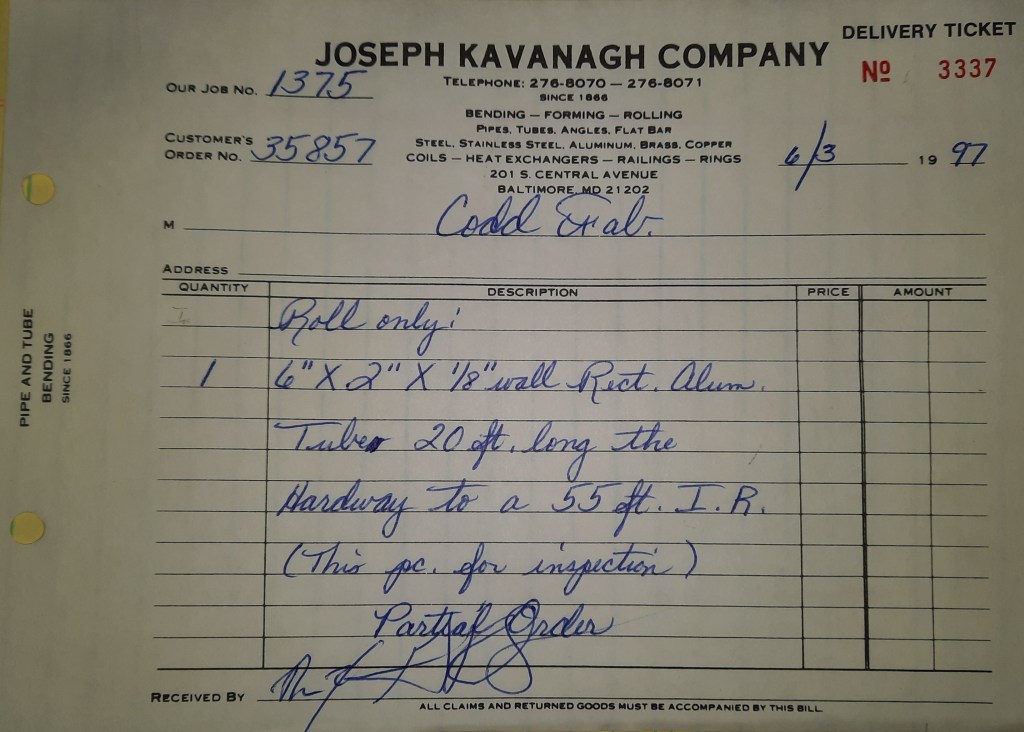 DELIVERY TICKET
JOSEPH KAVANAGH COMPANY
No 3337
OUR JOB NO. 1375
TELEPHONE: 276-8070 — 276-8071
SINCE 1866
BENDING — FORMING — ROLLING
PIPES, TUBES, ANGLES, FLAT BAR
CUSTOMER'S
ORDER NO. 35857
STEEL, STAINLESS STEEL, ALUMINUM, BRASS, COPPER
COILS — HEAT EXCHANGERS — RAILINGS — RINGS
6/3 1997
201 S. CENTRAL AVENUE
BALTIMORE, MD 21202
M Codd Fab.
ADDRESS
QUANTITY DESCRIPTION PRICE AMOUNT
Roll only:
1 6" X 2" X 1/8" wall Rect. Alum.
Tube 20 ft. long the
Hardway to a 55 ft. I.R.
(This pc. for inspection)
Part of Order
RECEIVED BY
ALL CLAIMS AND RETURNED GOODS MUST BE ACCOMPANIED BY THIS BILL
PIPE AND TUBE
BENDING
SINCE 1866